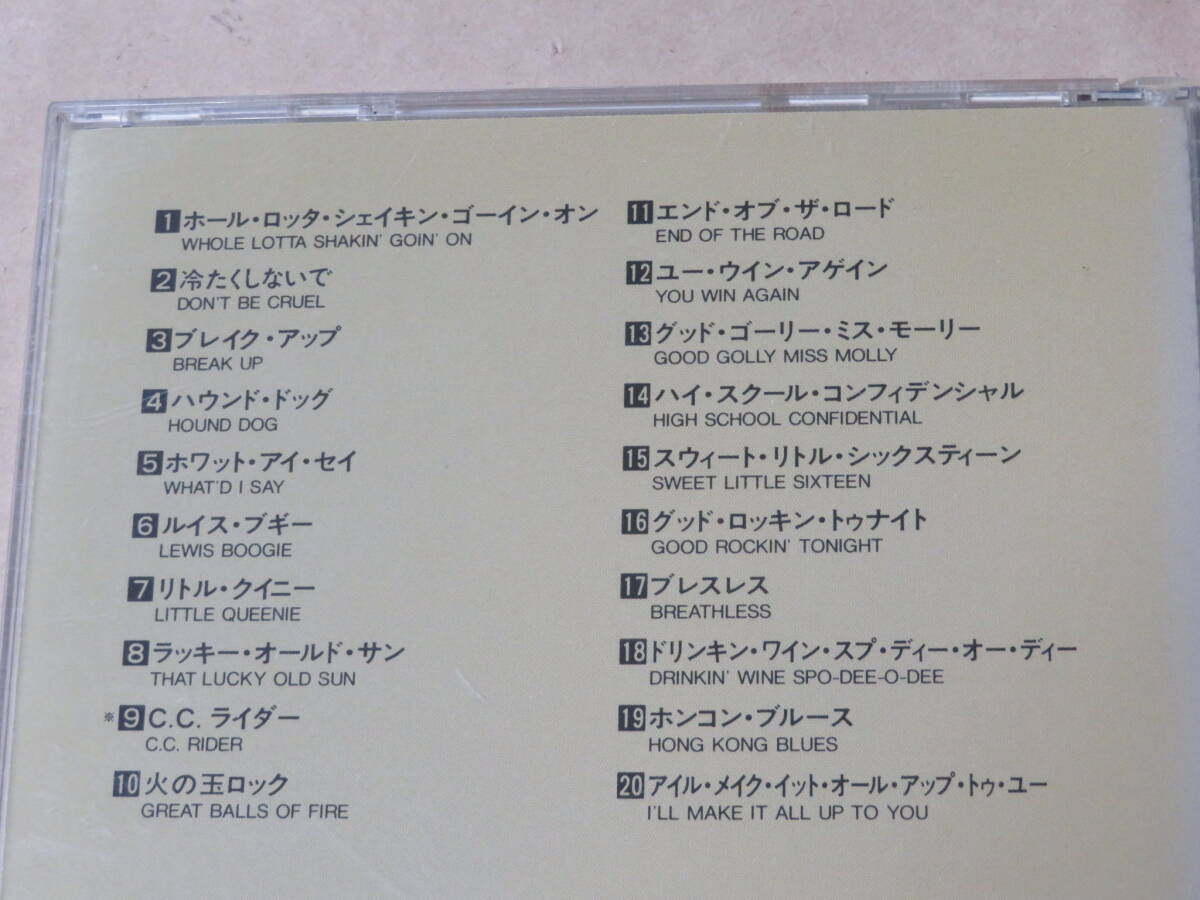 1 ホール・ロッタ・シェイキン・ゴーイン・オン
WHOLE LOTTA SHAKIN' GOIN' ON
2 冷たくしないで
DON'T BE CRUEL
3 ブレイク・アップ
BREAK UP
4 ハウンド・ドッグ
HOUND DOG
5 ホワット・アイ・セイ
WHAT'D I SAY
6 ルイス・ブギー
LEWIS BOOGIE
7 リトル・クイニー
LITTLE QUEENIE
8 ラッキー・オールド・サン
THAT LUCKY OLD SUN
※9 C.C. ライダー
C.C. RIDER
10 火の玉ロック
GREAT BALLS OF FIRE
11 エンド・オブ・ザ・ロード
END OF THE ROAD
12 ユー・ウイン・アゲイン
YOU WIN AGAIN
13 グッド・ゴーリー・ミス・モーリー
GOOD GOLLY MISS MOLLY
14 ハイ・スクール・コンフィデンシャル
HIGH SCHOOL CONFIDENTIAL
15 スウィート・リトル・シックスティーン
SWEET LITTLE SIXTEEN
16 グッド・ロッキン・トゥナイト
GOOD ROCKIN' TONIGHT
17 ブレスレス
BREATHLESS
18 ドリンキン・ワイン・スプ・ディー・オー・ディー
DRINKIN' WINE SPO-DEE-O-DEE
19 ホンコン・ブルース
HONG KONG BLUES
20 アイル・メイク・イット・オール・アップ・トゥ・ユー
I'LL MAKE IT ALL UP TO YOU